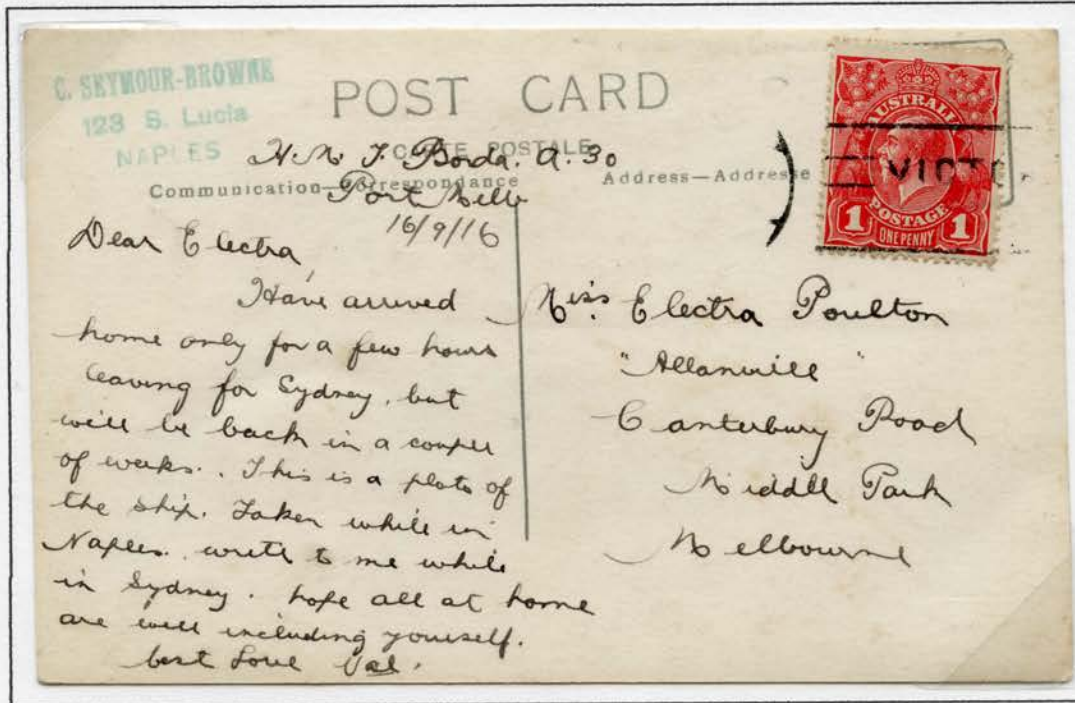 C. SEYMOUR-BROWNE
123 S. Lucia
NAPLES
POST CARD
CARTE POSTALE
Communication—Correspondance
Address—Addresse
H.M.T. Borda. A.30
Port Melb
16/9/16
Dear Electra,
Have arrived
home only for a few hours
leaving for Sydney, but
will be back in a couple
of weeks. This is a photo of
the ship. Taken while in
Naples. write to me while
in Sydney. hope all at home
are well including yourself.
best Love Val.
AUSTRALI
POSTAGE
1 ONE PENNY 1
VICT
Miss. Electra Poulton
"Allanvill"
Canterbury Road
Middle Park
Melbourne